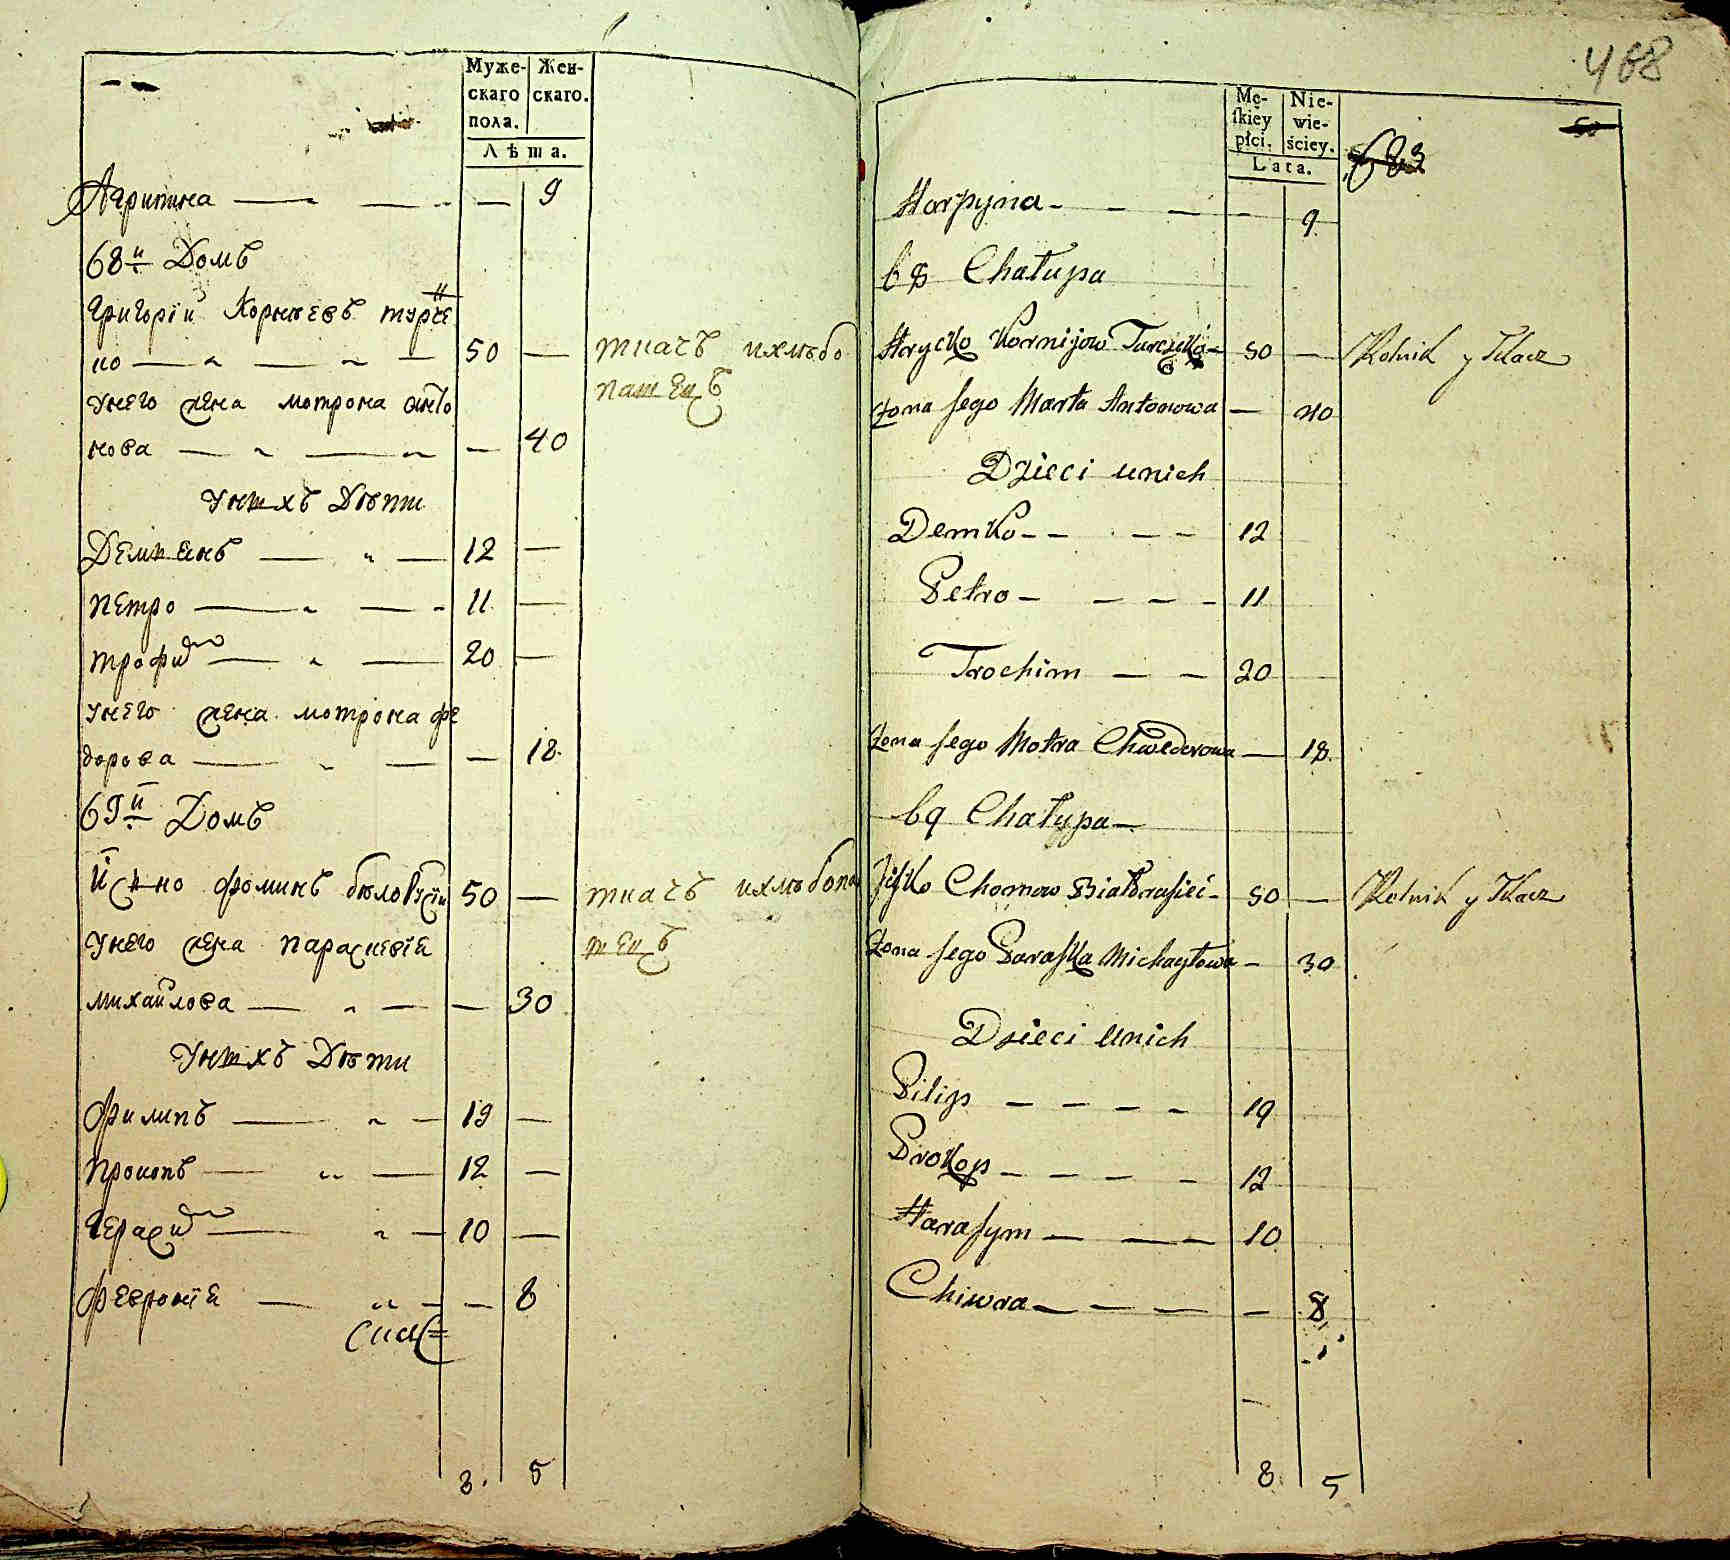 Муже- Жен-
скаго скаго.
пола.
Лѣта.
Агрипина — — — 9
68й Домъ
Григорїй Корнѣевъ турче
но — — — 50 — ткачъ ихлѣбо
пашецъ
унего жена мотрона анто
нова — — — 40
унихъ Дѣти
Демианъ — — 12 —
петро — — 11 —
трофим — — 20 —
унего жена мотрона фе
дорова — — — 18.
69й Домъ
фоминъ 50 — ткачъ ихлѣбопа
шецъ
унего жена параскевїа
михайлова — — — 30
унихъ Дѣти
филипъ — — 19 —
прокопъ — — 12 —
герасим — — 10 —
феврониїа — — — 8
8. 5
468
Mę- Nie-
skiéy wie-
płci. ściey.
Lata.
683
Harpyna - - - - 9
68 Chałupa
Hrycko Kornijow 50 — Rolnik y Tkacz
żona jego Marta Antonowa — 40
Dzieci unich
Demko - - - - 12
Petro - - - - 11
Trochim — — 20
żona jego Motra Chwedorowa — 18.
69 Chałupa —
Chomow 50 — Rolnik y Tkacz
żona jego Paraska Michayłowa — 30
Dzieci unich
Pilip — — — — 19
Prokop — — — — 12
Harasym — — — 10
Chiwra — — — — 8
8. 5